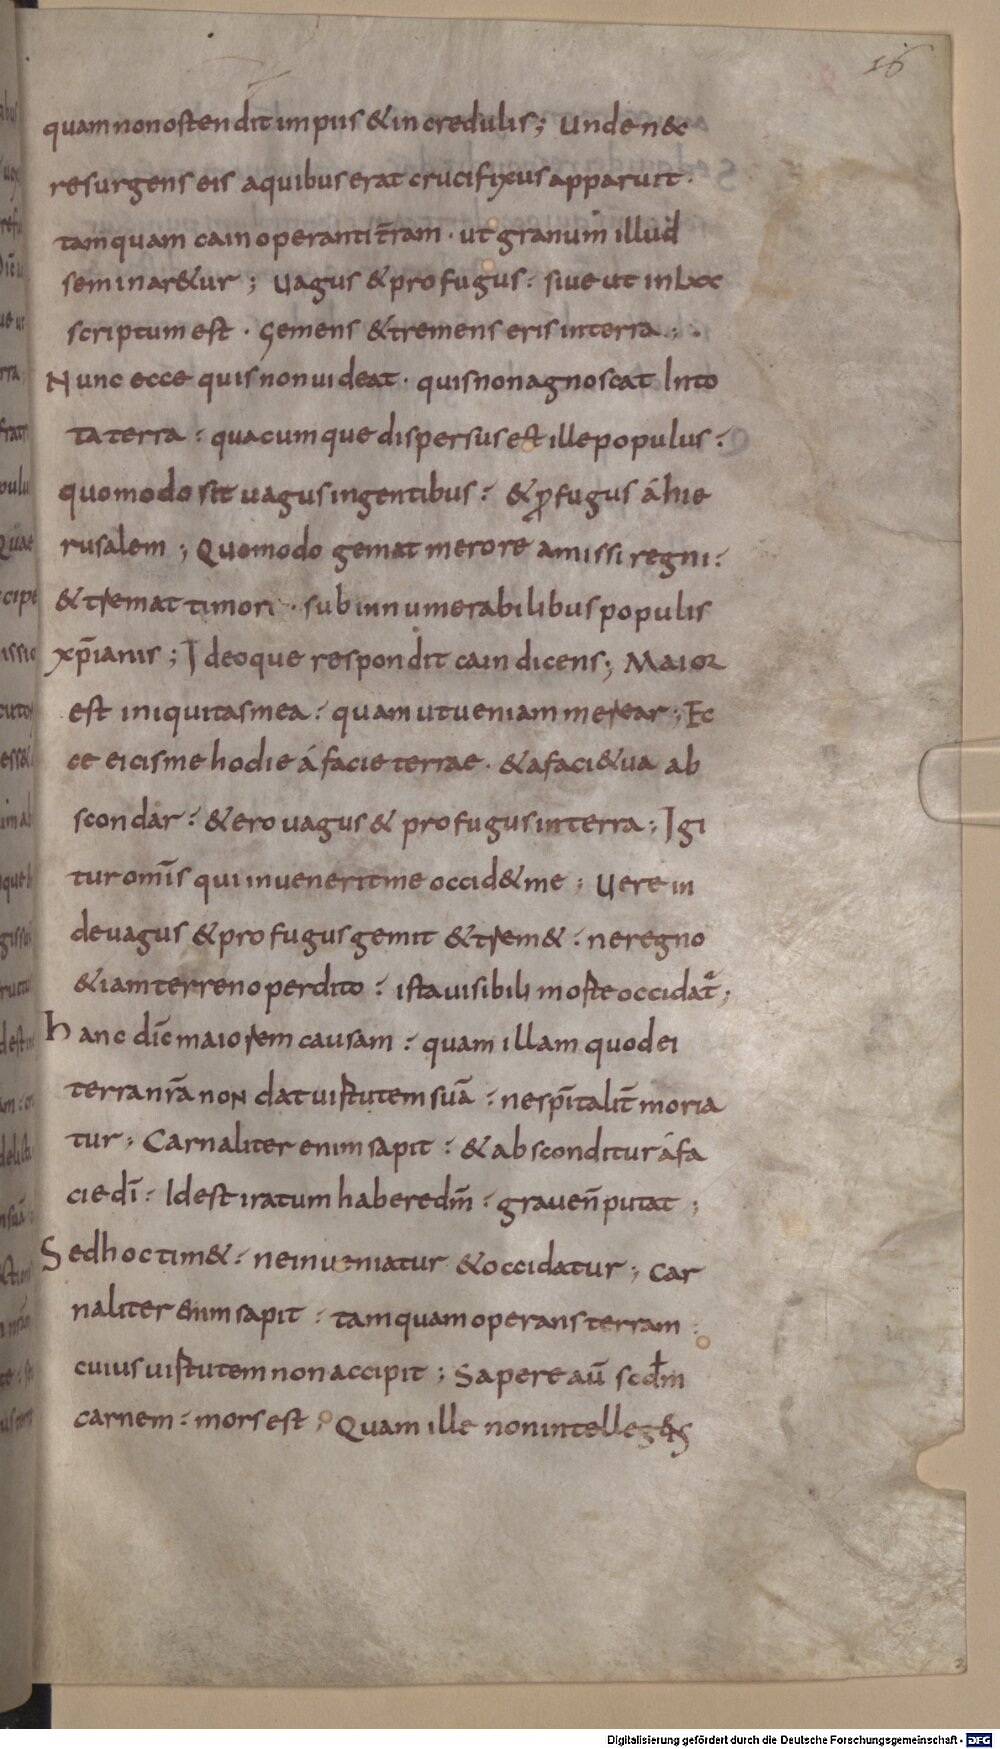 16
quam non ostendit impiis & incredulis; Unde n&c
resurgens eis a quibus erat crucifixus apparuit.
tamquam cain operanti tr̄am. ut granum illud
seminar&ur; Uagus & profugus: siue ut in lxx
scriptum est. Gemens & tremens eris in terra;
Nunc ecce quis non uideat. quis non agnoscat In to
ta terra: quacumque dispersus est ille populus:
quomodo sit uagus in gentibus: & ꝓfugus á hie
rusalem; Quomodo gemat merore amissi regni:
& tremat timori. sub innumerabilibus populis
xp̄ianis; Ideoque respondit cain dicens; Maior
est iniquitas mea: quam ut ueniam merear; Ec
ce eicis me hodie á facie terrae. & a faci& ua ab
scondar: & ero uagus & profugus in terra; Igi
tur omīs qui inuenerit me occid& me; Uere in
de uagus & profugus gemit & trem&: ne regno
& iam terreno perdito: ista uisibili mo&#115;te occidat̄;
Hanc dīc maiorem causam: quam illam quod ei
terra nr̄a non dat uirtutem suā: ne sp̄italit̄ moria
tur; Carnaliter enim sapit: & absconditur á fa
cie dī: Id est iratum habere dm̄: graue n̄ putat;
Sed hoc tim&: ne inueniatur & occidatur; Car
naliter enim sapit: tamquam operans terram:
cuius uirtutem non accipit; Sapere aū scdm̄
carnem: mors est; Quam ille non intellegens
Digitalisierung gefördert durch die Deutsche Forschungsgemeinschaft - DFG